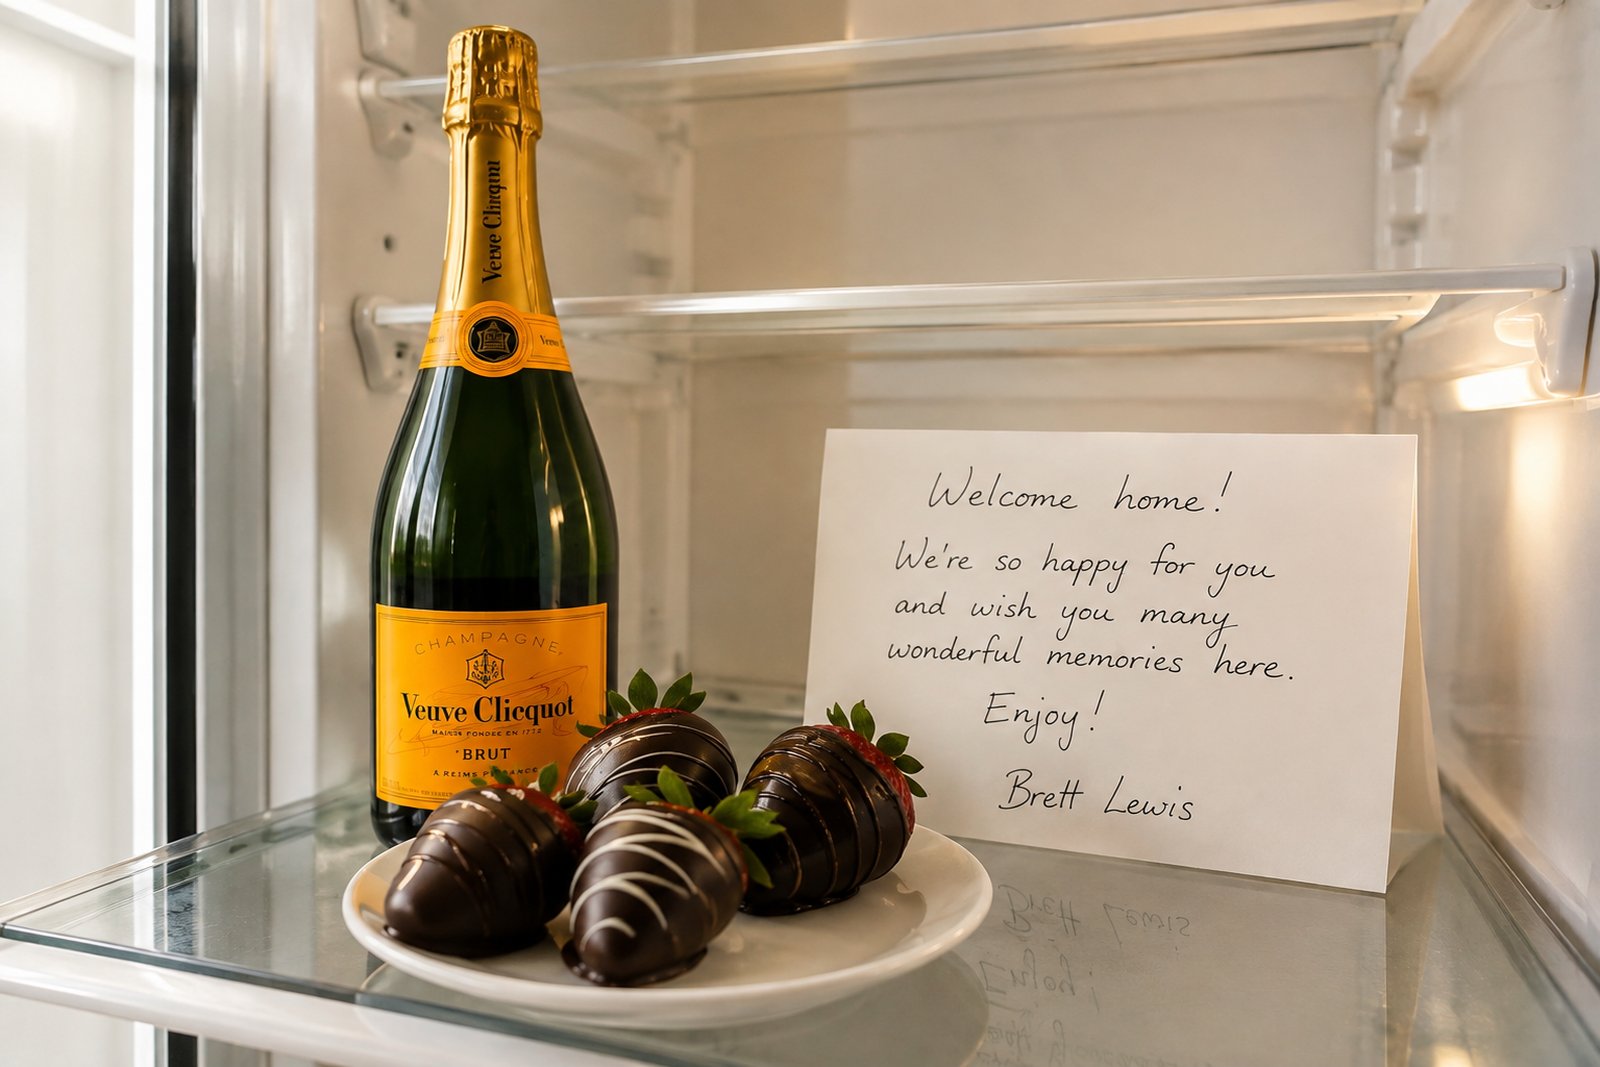 Veuve Clicquot
CHAMPAGNE
Veuve Clicquot
MAISON FONDÉE EN 1772
BRUT
À REIMS FRANCE
Welcome home!
We're so happy for you
and wish you many
wonderful memories here.
Enjoy!
Brett Lewis